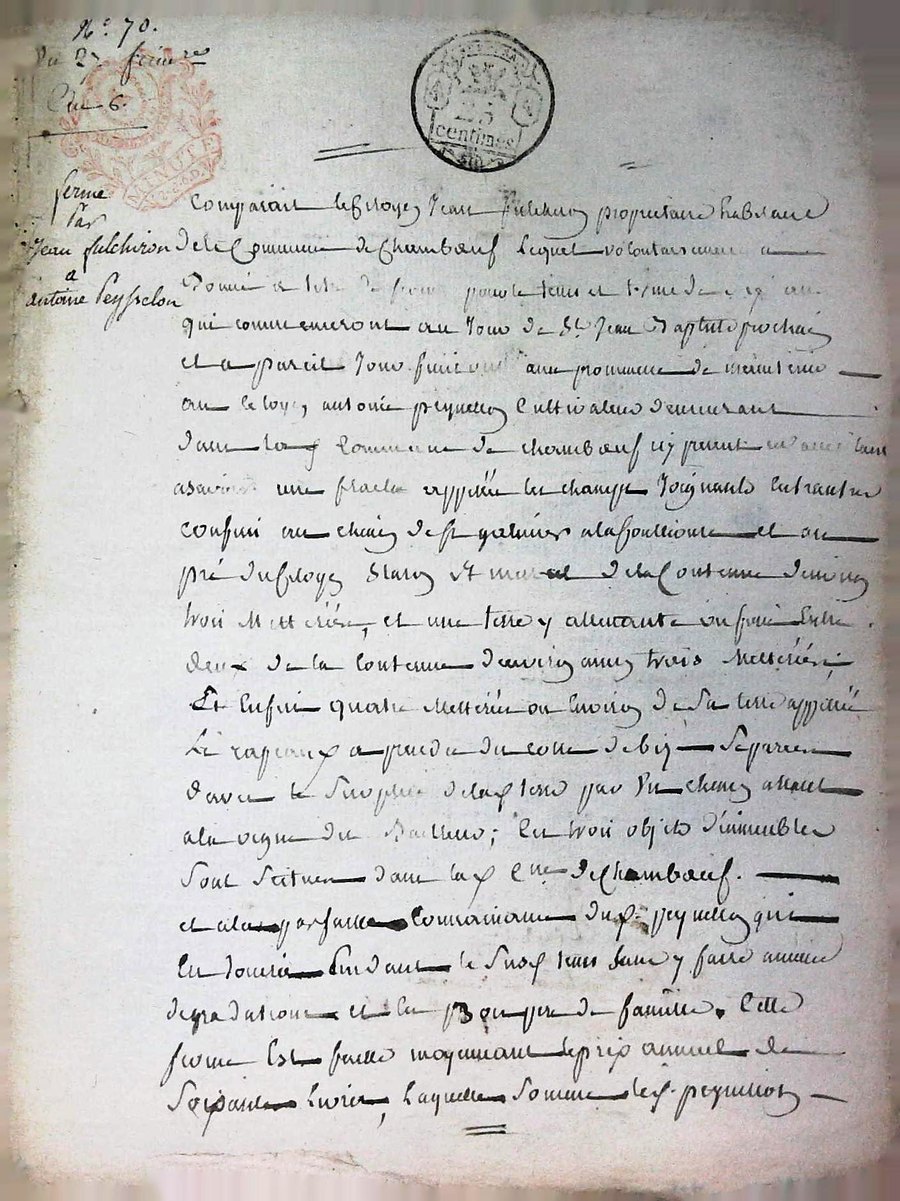 N.° 70.
Du 27 frimre
L'an 6.
25
centimes
MINUTE
ferme
Par
Jean fulchiron
a
antoine Peysselon
Comparait le Citoyen Jean fulchiron propriétaire habitant
de la Commune de Chambœuf lequel volontairement a
Donné a titre de ferme pour le tems et terme de
qui commenceront au Jour de St Jean Baptiste prochain
et a pareil Jour finiront aux promesse de maintenir
au Citoyen antoine peysselon Cultivateur demeurant
dans la d Commune de chambœuf icy present et acceptant
asavoir une appellée les champs Joignants
confiné au chemin de St galmier a la fouillouse et au
pré du Citoyen St marcel de la Contenue d'environ
trois Metterées, et une terre y attenante un fossé Entre
deux de la Contenue d'environ aussy trois Metterées;
Et Enfin quatre Metterées ou Environ de Sa terre appellée
Le a prendre du cotté de bize Separée
d'avec le Surplus de lad terre par Un chemin allant
a la vigne du Bailleur; Les trois objets d'immeubles
Sont Scitués dans lad Cne de Chambœuf.
et a la parfaite Connaissance dud. peysselon qui
En Jouira Pendant le Susd tems Sans y faire aucune
degradations et en Bon pere de famille. Cette
ferme Est faitte moyennant le prix annuel de
Soixante Livres, Laquelle Somme led. peysselon